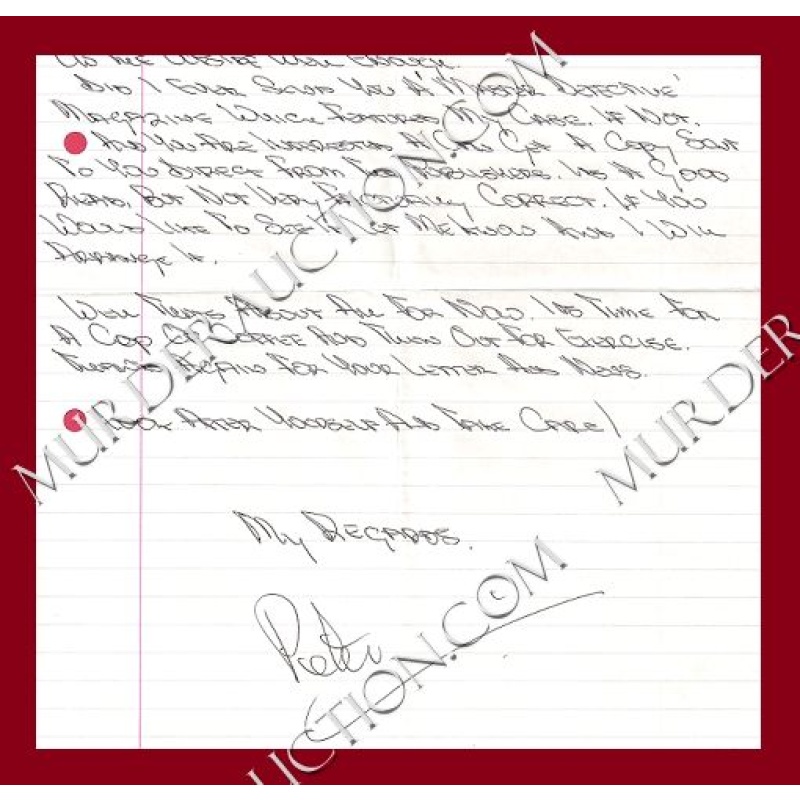 Did I Ever Send You A 'Master Detective'
Magazine Which Features My Case. If Not,
And You Are Interested I Can Get A Copy Sent
To You Direct From The Publishers. Its A Good
Read, But Not Very Factually Correct. If You
Would Like To See It Let Me Know And I Will
Arrange It.
Well Thats About All For Now. Its Time For
A Cup Of Coffee And Then Out For Exercise.
Thanks Again For Your Letter And News.
Look After Yourself And Take Care!
My Regards.
Peter
MURDERAUCTION.COM
MURDER
UCTION.COM